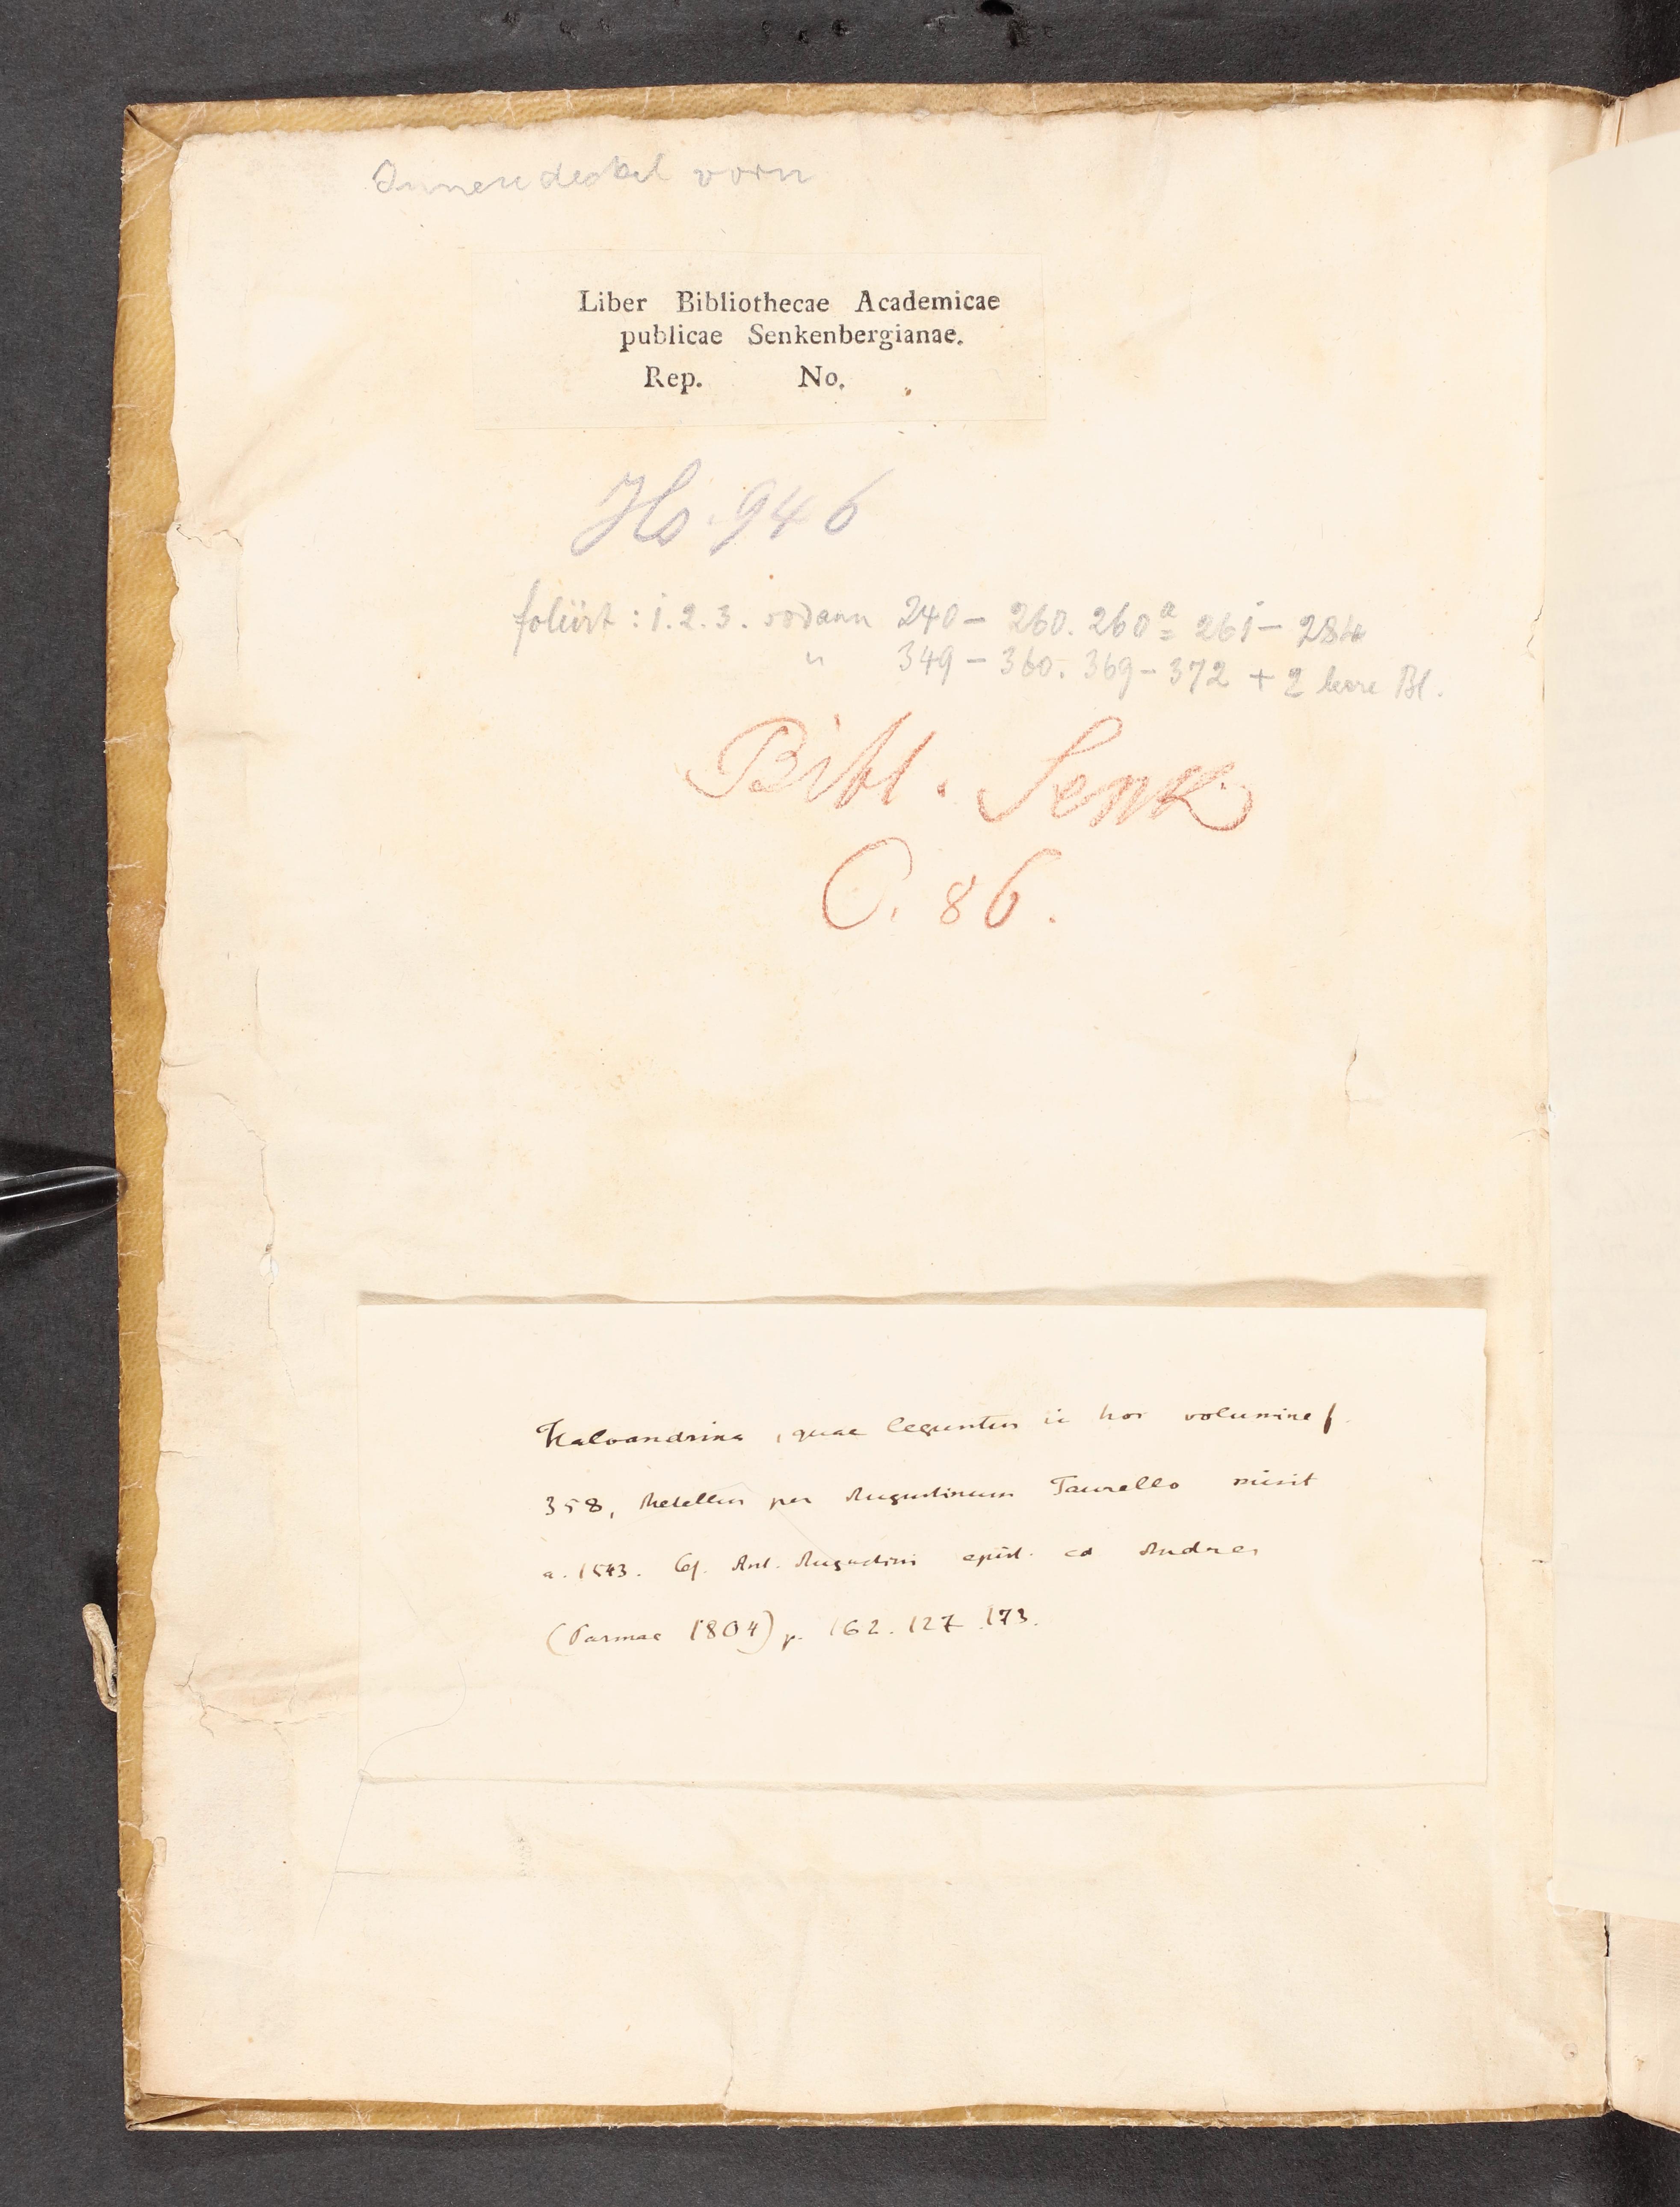 Innendeckel vorn
Liber Bibliothecae Academicae
publicae Senkenbergianae.
Rep. No.
Hs. 946
foliirt: 1. 2. 3. sodann 240 - 260. 260a 261 - 284
" 349 - 360. 369 - 372 + 2 leere Bl.
Bibl. Senk
C. 86.
Haloandrina, quae leguntur in hoc volumine f.
358, Metellus per Augustinum Taurello misit
a. 1543. Cf. Ant. Augustini epist. ed Andres
(Parmae 1804) p. 162. 127. 173.